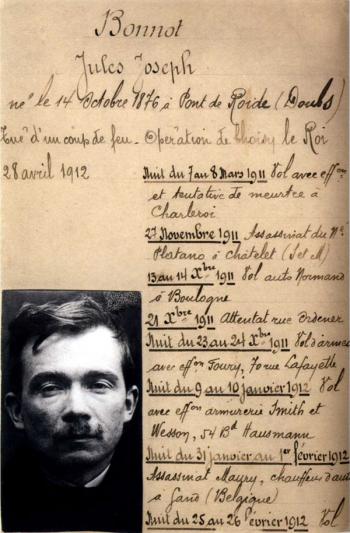 Bonnot
Jules Joseph
né le 14 Octobre 1876 à Pont de Roide (Doubs)
Tué d'un coup de feu - Opération de Choisy le Roi
28 avril 1912
Nuit du 7 au 8 Mars 1911 Vol avec effon
et tentative de meurtre à
Charleroi
27 Novembre 1911 Assassinat du Né
Platano à châtelet (S et M)
13 au 14 Xbre 1911 Vol auto Normand
à Boulogne
21 Xbre 1911 Attentat rue Ordener
Nuit du 23 au 24 Xbre 1911 Vol d'armes
avec effon Foury, 70 rue Lafayette
Nuit du 9 au 10 janvier 1912 Vol
avec effon armurerie Smith et
Wesson, 54 Bd Hausmann
Nuit du 31 janvier au 1er février 1912
Assassinat Maury, chauffeur d'auto
à Gand (Belgique)
Nuit du 25 au 26 février 1912 Vol